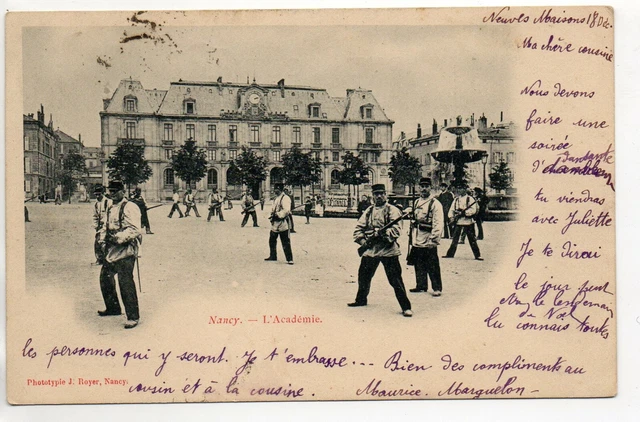 Neuves Maisons 18 Déc.
Ma chère cousine
Nous devons
faire une
soirée
d'
dansante
tu viendras
avec Juliette
Je te dirai
le jour peut
le lendemain
de No.
tu connais toutes
les personnes qui y seront. Je t'embrasse... Bien des compliments au
cousin et à la cousine. Maurice. Marguelon -
Nancy. — L'Académie.
Phototypie J. Royer, Nancy.